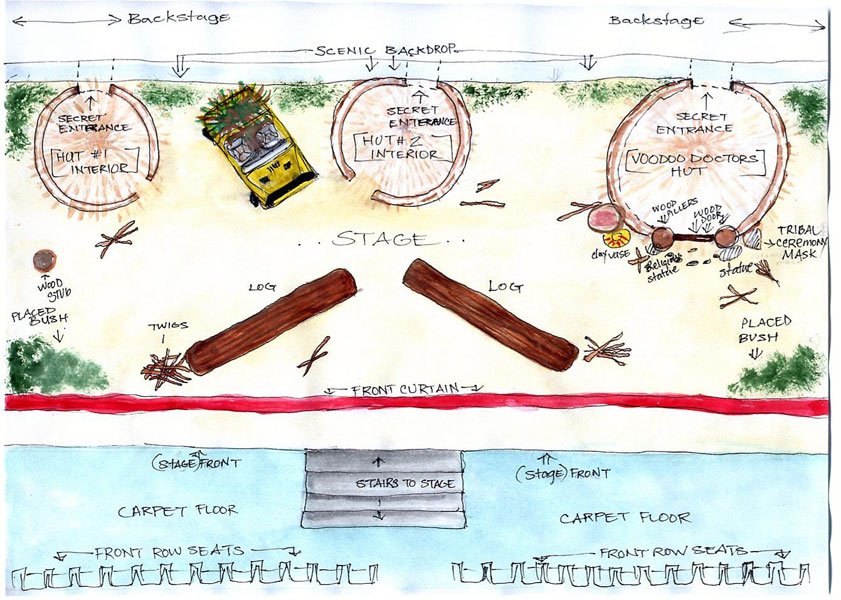 Backstage
Backstage
SCENIC BACKDROP
SECRET
ENTERANCE
HUT #1
INTERIOR
SECRET
ENTERANCE
HUT #2
INTERIOR
SECRET
ENTRANCE
VOODOO DOCTORS
HUT
WOOD
PILLERS
WOOD
DOOR
TRIBAL
CEREMONY
MASK
clay vase
Religious
statue
statue
.. STAGE ..
WOOD
STUB
PLACED
BUSH
LOG
LOG
TWIGS
PLACED
BUSH
FRONT CURTAIN
(STAGE) FRONT
(Stage) FRONT
STAIRS TO STAGE
CARPET FLOOR
CARPET FLOOR
FRONT ROW SEATS
FRONT ROW SEATS